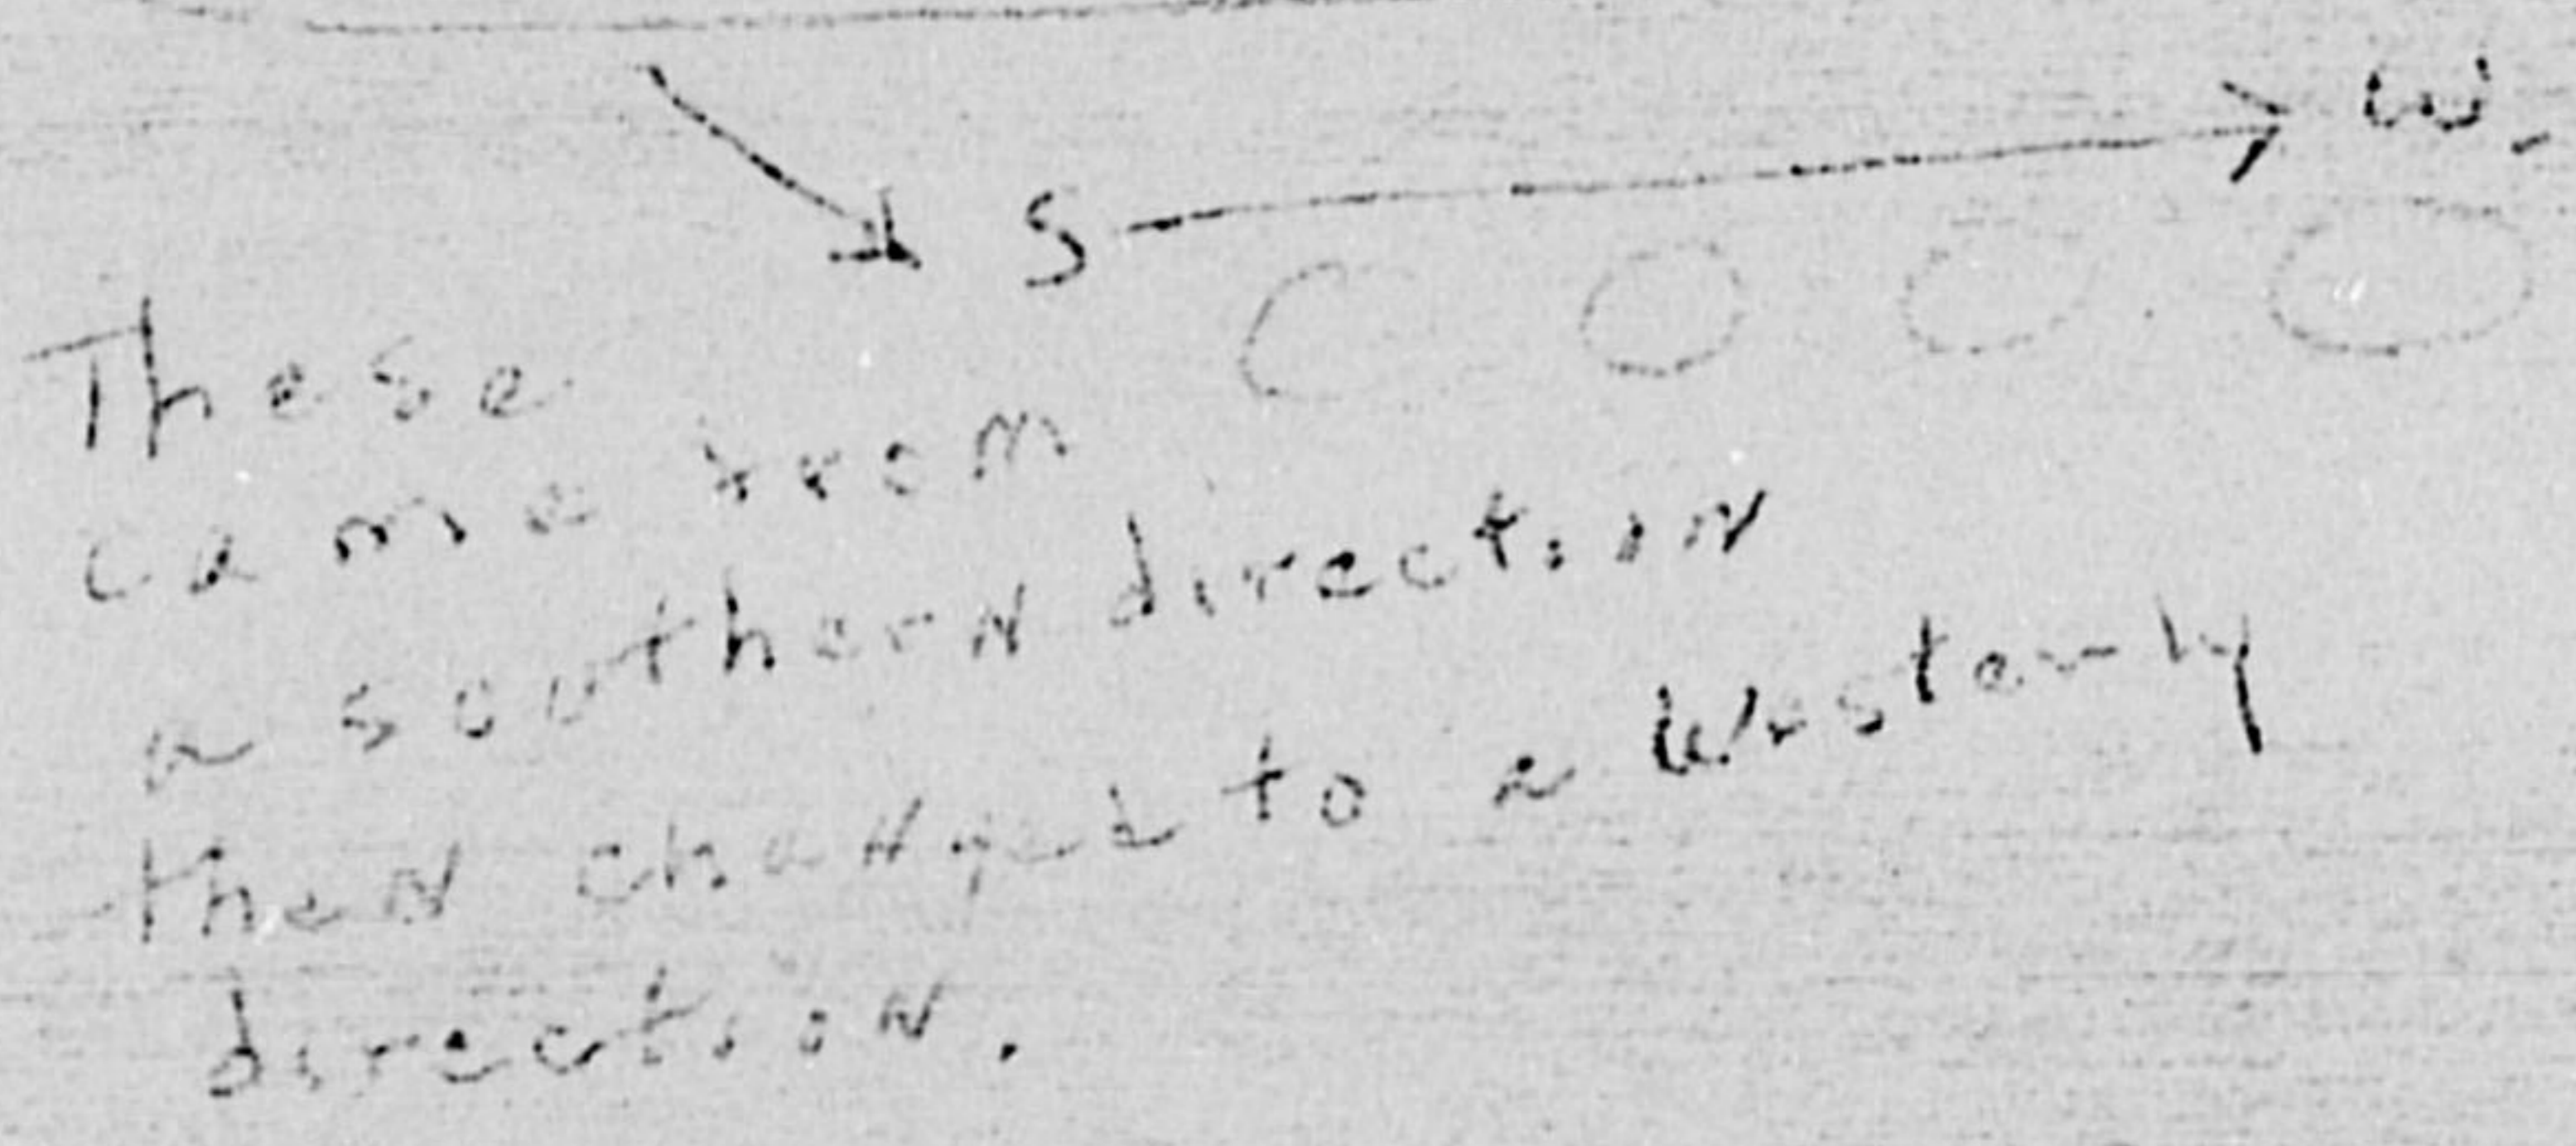 S W.
These
came from
a southern direction
then changed to a Westerly
direction.